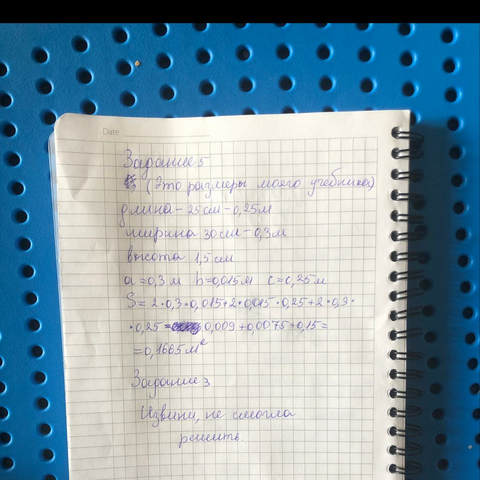 Date
Задание 5
(Это размеры моего учебника)
длина - 25 см - 0,25 м
ширина 30 см - 0,3 м
высота 1,5 см
a = 0,3 м b = 0,015 м c = 0,25 м
S = 2·0,3·0,015+2·0,015·0,25+2·0,3·
·0,25 = 0,009+0,0075+0,15=
=0,1665 м²
Задание 3
Извини, не смогла
решить.